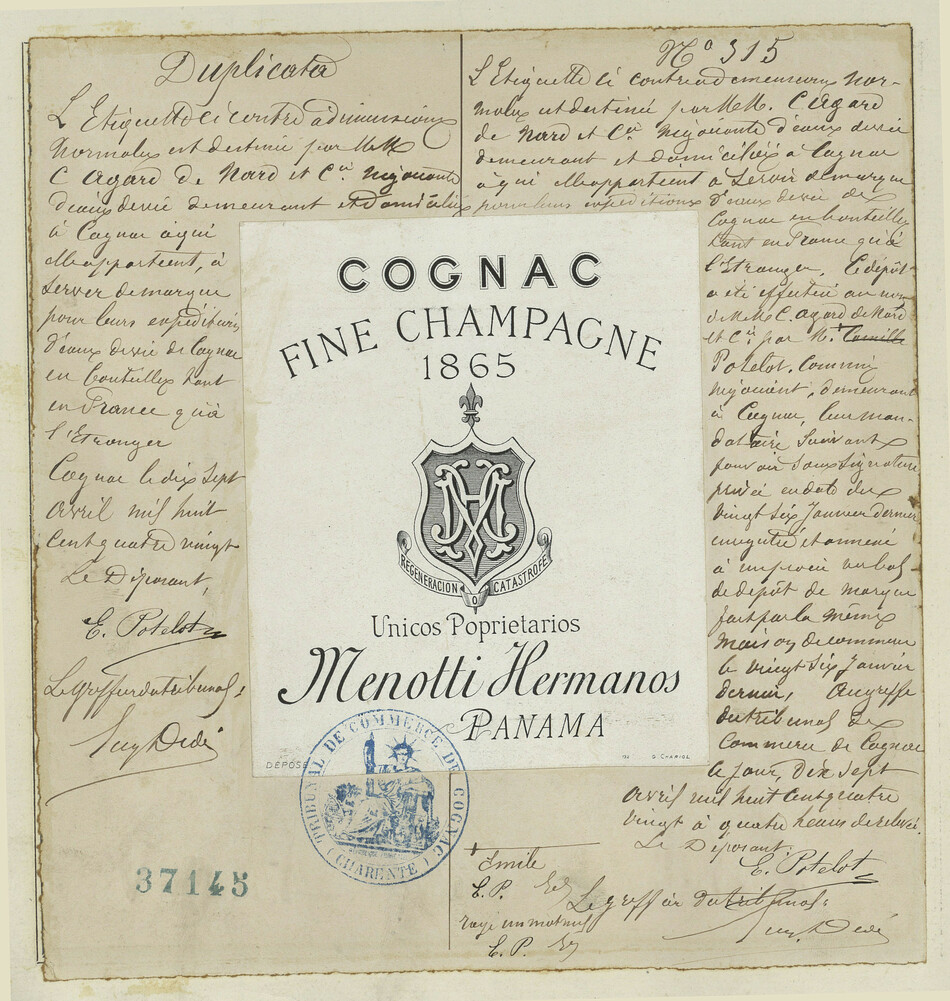 Duplicata
L'Etiquette ci contre a dimensions
Normales est destiné par MM
C Agard de Nard et Cie Négociants
d'eaux de vie demeurant et domiciliés
à Cognac à qui
elle appartient, à
servir de marque
pour leurs expéditions
d'eaux de vie de Cognac
en bouteilles tant
en France qu'à
l'Etranger
Cognac le dix sept
avril mil huit
cent quatre vingt
Le Déposant,
E. Potelot
Le greffier du tribunal,
No 315
L'Etiquette ci contre a dimensions Nor-
males est destiné par MM. C Agard
de Nard et Cie Négociants d'eaux de vie
demeurant et domiciliés à Cognac
à qui elle appartient à servir de marque
pour leurs expéditions d'eaux de vie de
Cognac en bouteilles
tant en France qu'à
l'Etranger. Le dépôt
a été effectué au nom
de MM C. Agard de Nard
et Cie par M. + Camille
Potelot, commis
négociant, demeurant
à Cognac, leur man-
dataire suivant
pouvoir sous signature
privée en date du
vingt six Janvier dernier
enregistré et annexé
à un procès verbal
de dépôt de marque
fait par la même
maison de commerce
le vingt six Janvier
dernier, au greffe
du tribunal de
Commerce de Cognac
Ce jour, dix sept
avril mil huit cent quatre
vingt à quatre heures de relevée.
Le Déposant.
E. Potelot
Le greffier du tribunal:
+ Emile
E. P.
rayé un mot nul
E. P.
COGNAC
FINE CHAMPAGNE
1865
REGENERACION O CATASTROFE
Unicos Poprietarios
Menotti Hermanos
PANAMA
DÉPOSÉ
D. CHARIOL
TRIBUNAL DE COMMERCE DE COGNAC
(CHARENTE)
37145